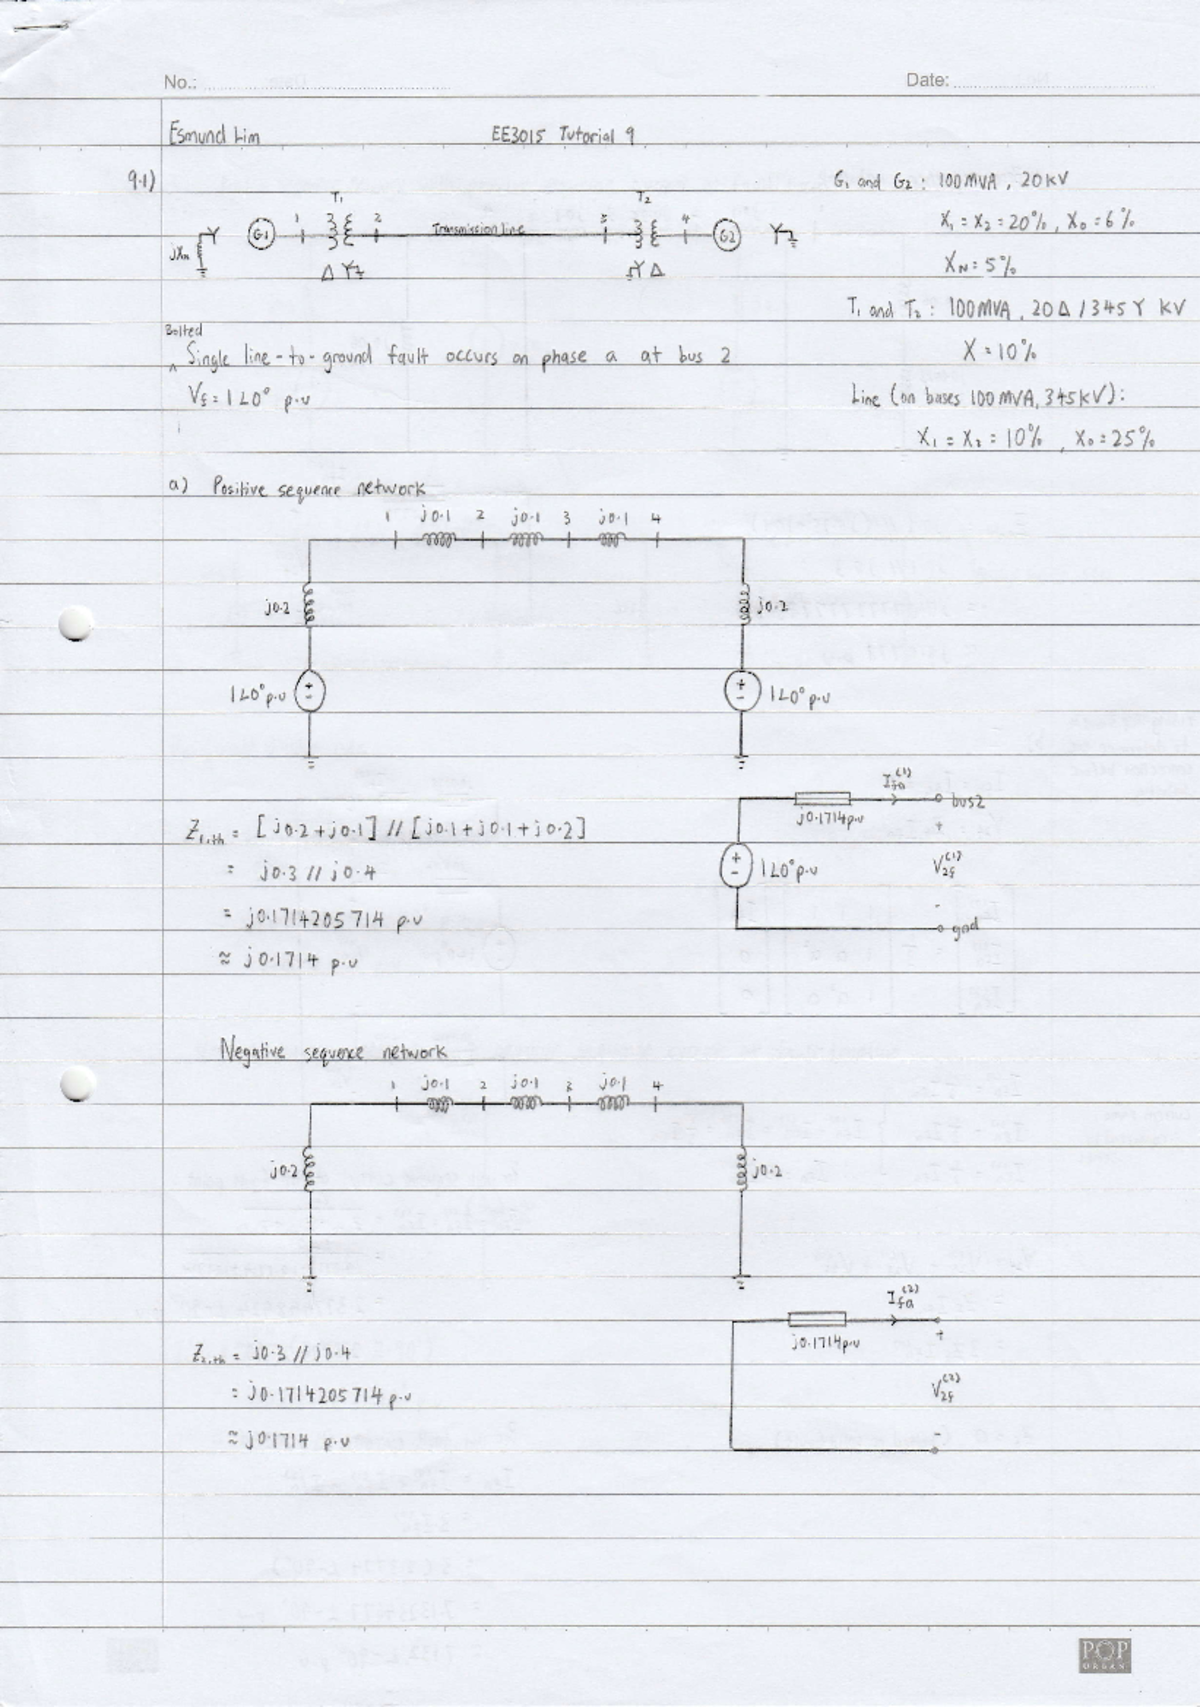 No.: Date:
Esmund Lim EE3015 Tutorial 9
9.1)
G₁ and G₂ : 100MVA, 20KV
X₁ = X₂ = 20%, X₀ = 6%
X_N = 5%
T₁ and T₂ : 100MVA, 20Δ/345Y KV
X = 10%
Line (on bases 100MVA, 345KV):
X₁ = X₂ = 10%, X₀ = 25%
T₁ T₂
jXₙ Y G1 1 2 Transmission line 3 4 G2 Y
Δ Y Y Δ
Bolted
^ Single line-to-ground fault occurs on phase a at bus 2
V_f = 1∠0° p.u
a) Positive sequence network
1 j0.1 2 j0.1 3 j0.1 4
j0.2 j0.2
+ -
1∠0° p.u 1∠0° p.u
Z₁,th = [j0.2+j0.1] // [j0.1+j0.1+j0.2]
= j0.3 // j0.4
= j0.1714205714 p.u
≈ j0.1714 p.u
I_fa⁽¹⁾
bus2
j0.1714p.u
+
1∠0° p.u V_2f⁽¹⁾
-
gnd
Negative sequence network
1 j0.1 2 j0.1 3 j0.1 4
j0.2 j0.2
Z₂,th = j0.3 // j0.4
= j0.1714205714 p.u
≈ j0.1714 p.u
I_fa⁽²⁾
j0.1714p.u
+
V_2f⁽²⁾
POP